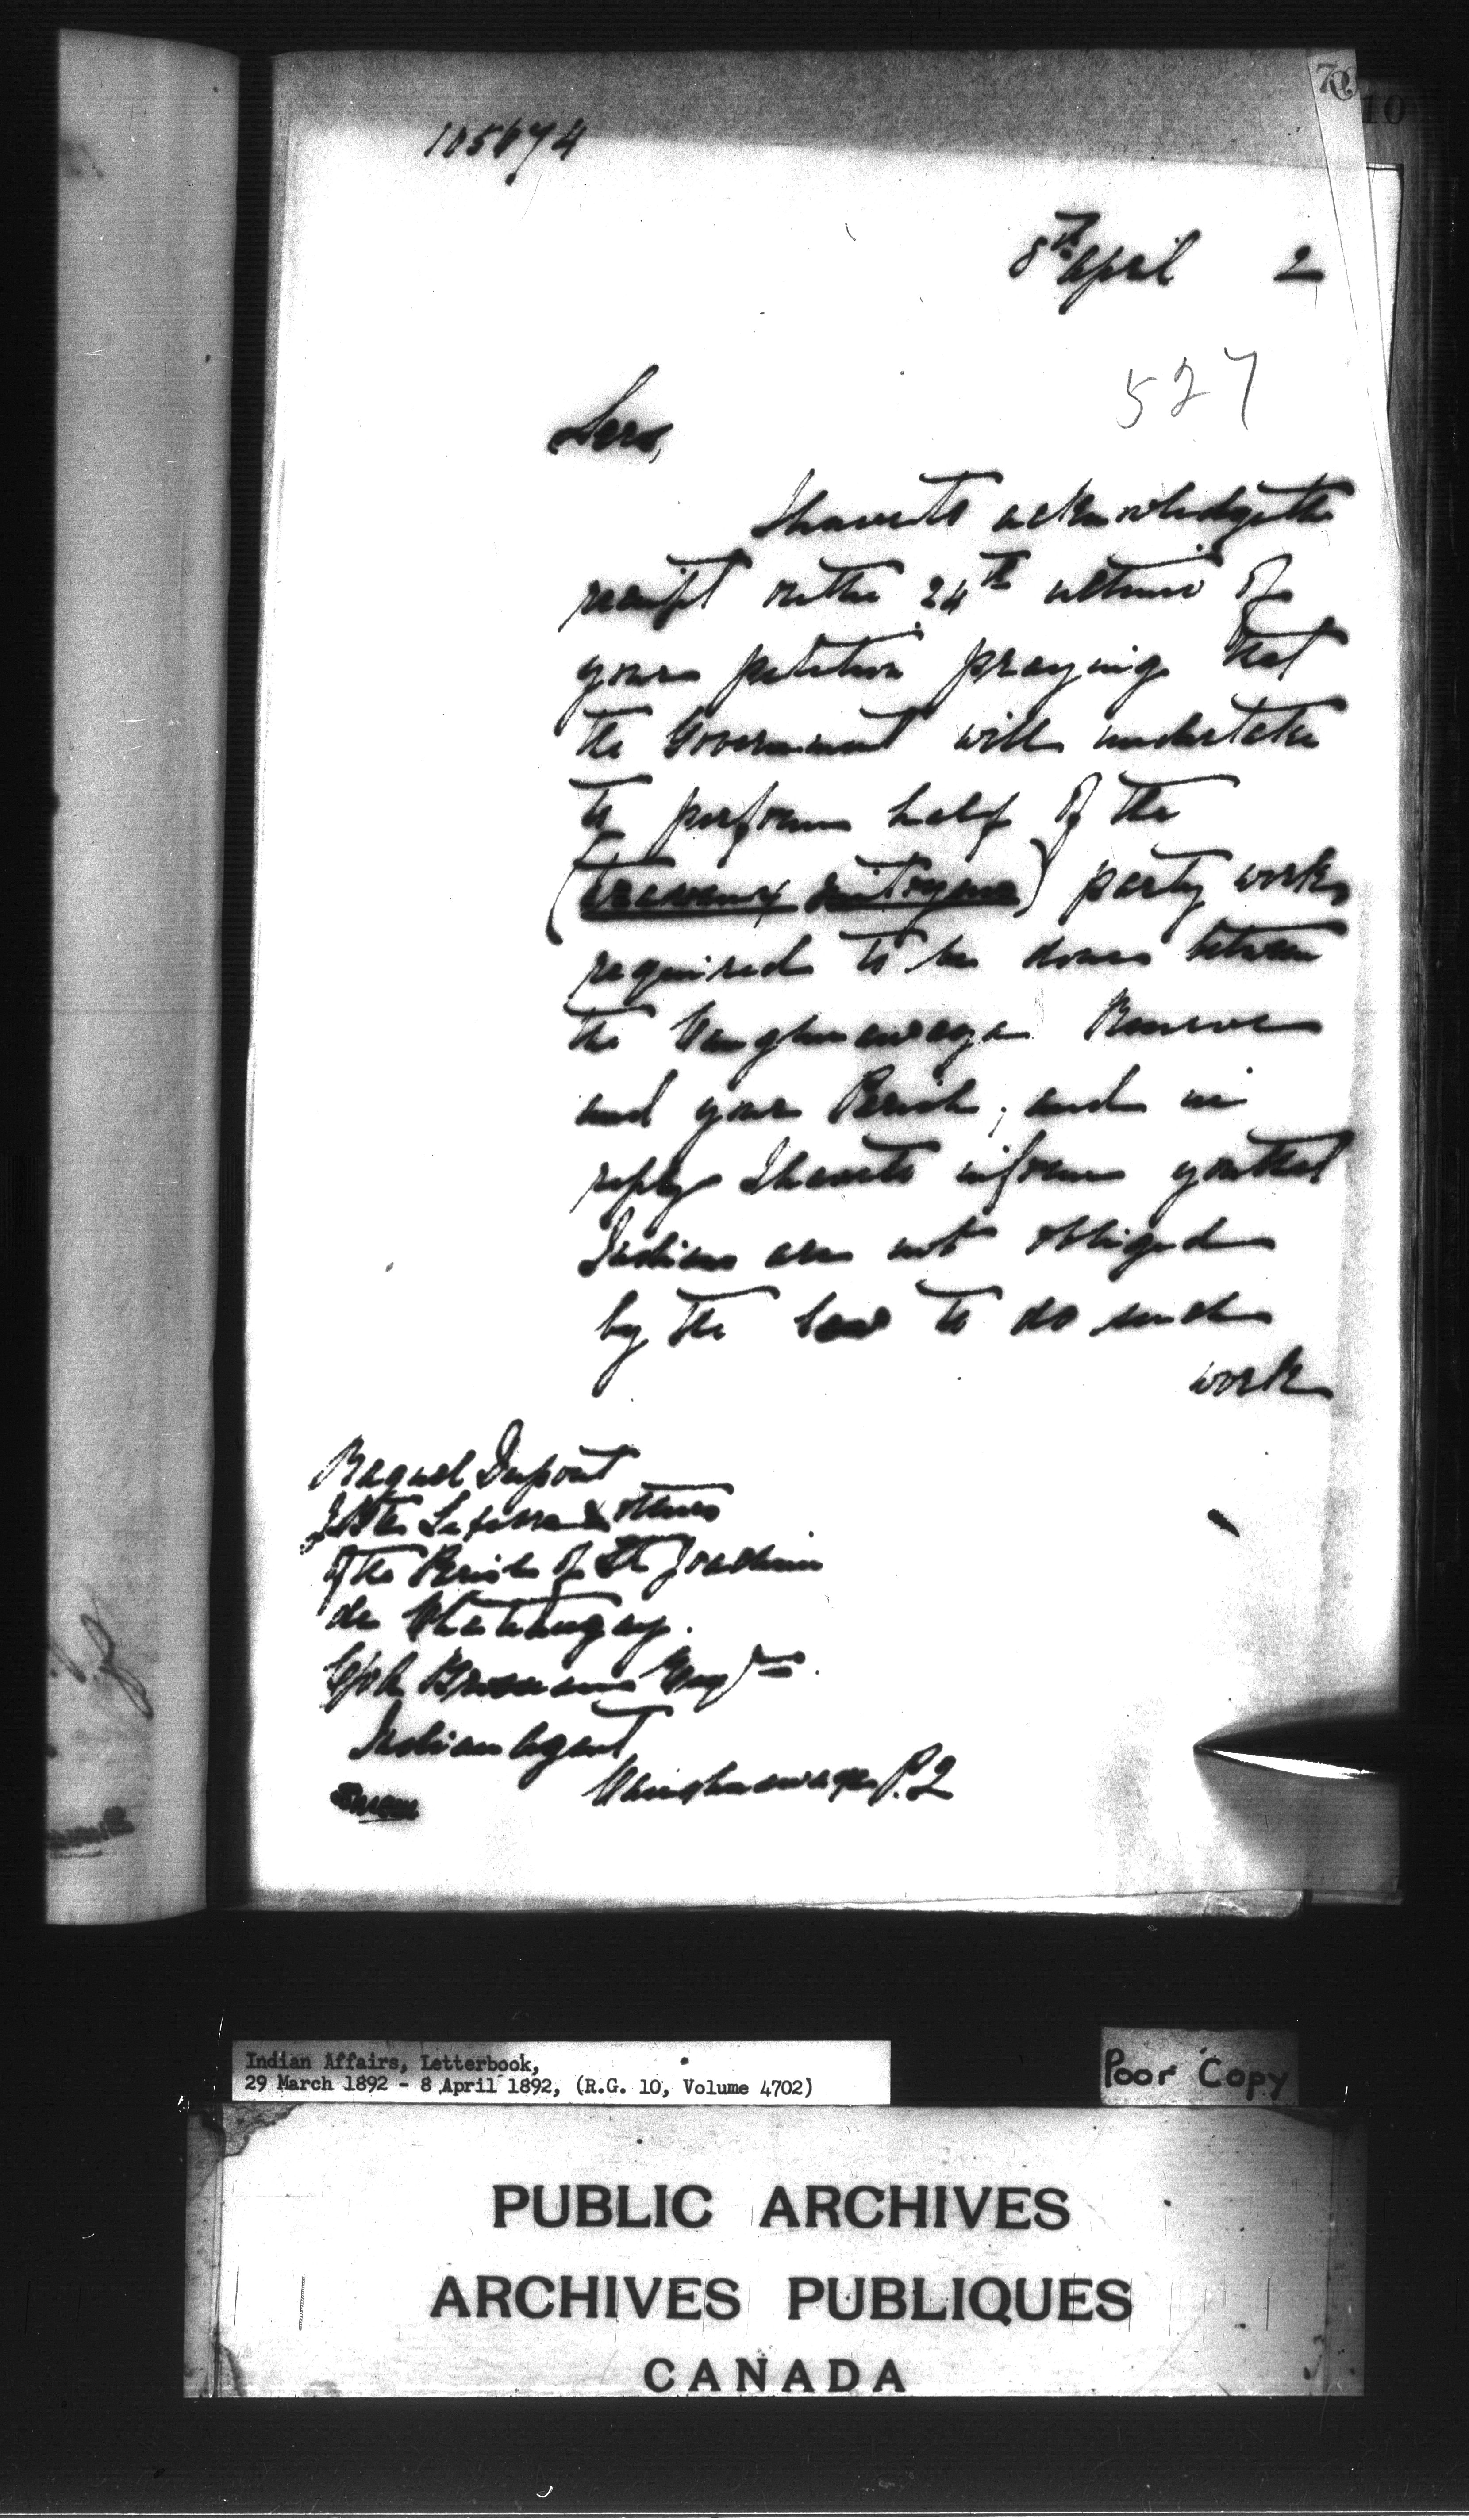 70
10
105674
8th April 2
527
Sirs,
I have to acknowledge the
receipt on the 24th ultimo of
your petition praying that
the Government will undertake
to perform half of the
(travaux mitoyens) party work
required to be done between
the Caughnawaga Reserve
and your Parish, and in
reply I have to inform you that
Indians are not obliged
by the law to do such
work
Dupont
& others
of the Parish of St. Joachim
de Chateauguay.
Brosseau Esqre
Indian Agent
Caughnawaga P.Q
Indian Affairs, Letterbook,
29 March 1892 - 8 April 1892, (R.G. 10, Volume 4702)
Poor Copy
PUBLIC ARCHIVES
ARCHIVES PUBLIQUES
CANADA